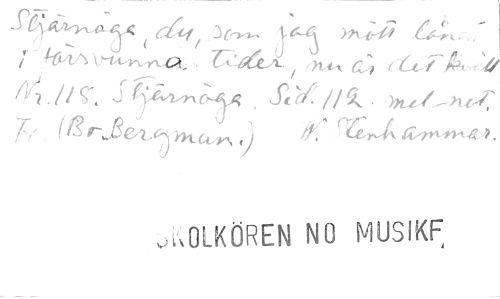 Stjärnöga, du, som jag mött långt
i försvunna tider, nu är det kväll
Nr. 118. Stjärnöga. Sid. 112. mel-not.
(Bo Bergman.) W. Stenhammar.
SKOLKÖREN NO MUSIKF